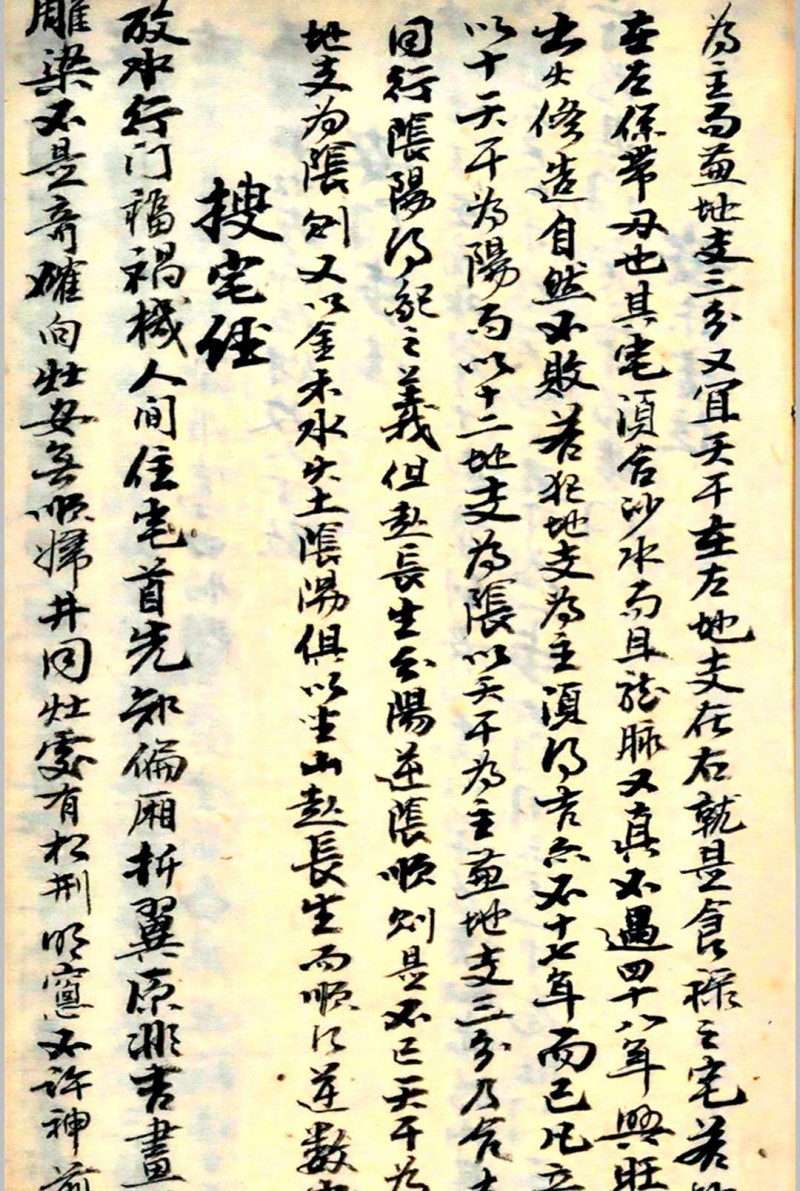 為主而兼地支三分又宜天干在左地支在右就是食祿之宅若
在右係帶刃也其宅須合沙水而且龍脉又真不過四十八年興旺
出火修造自然不敗若犯地支為主須得吉亦不十七年而已凡立
以十天干為陽而以十二地支為陰以天干為主兼地支三分乃合
同行陰陽得配之義但起長生分陽逆陰順則是不已天干為
地支為陰則又以金木水火土陰陽俱以坐山起長生而順行逆數
搜宅經
放水行门福禍機人间住宅首先知偏厢折翼原非吉畫
雕梁不是奇確向灶安無順婦井同灶處有松刑明窻不許神前